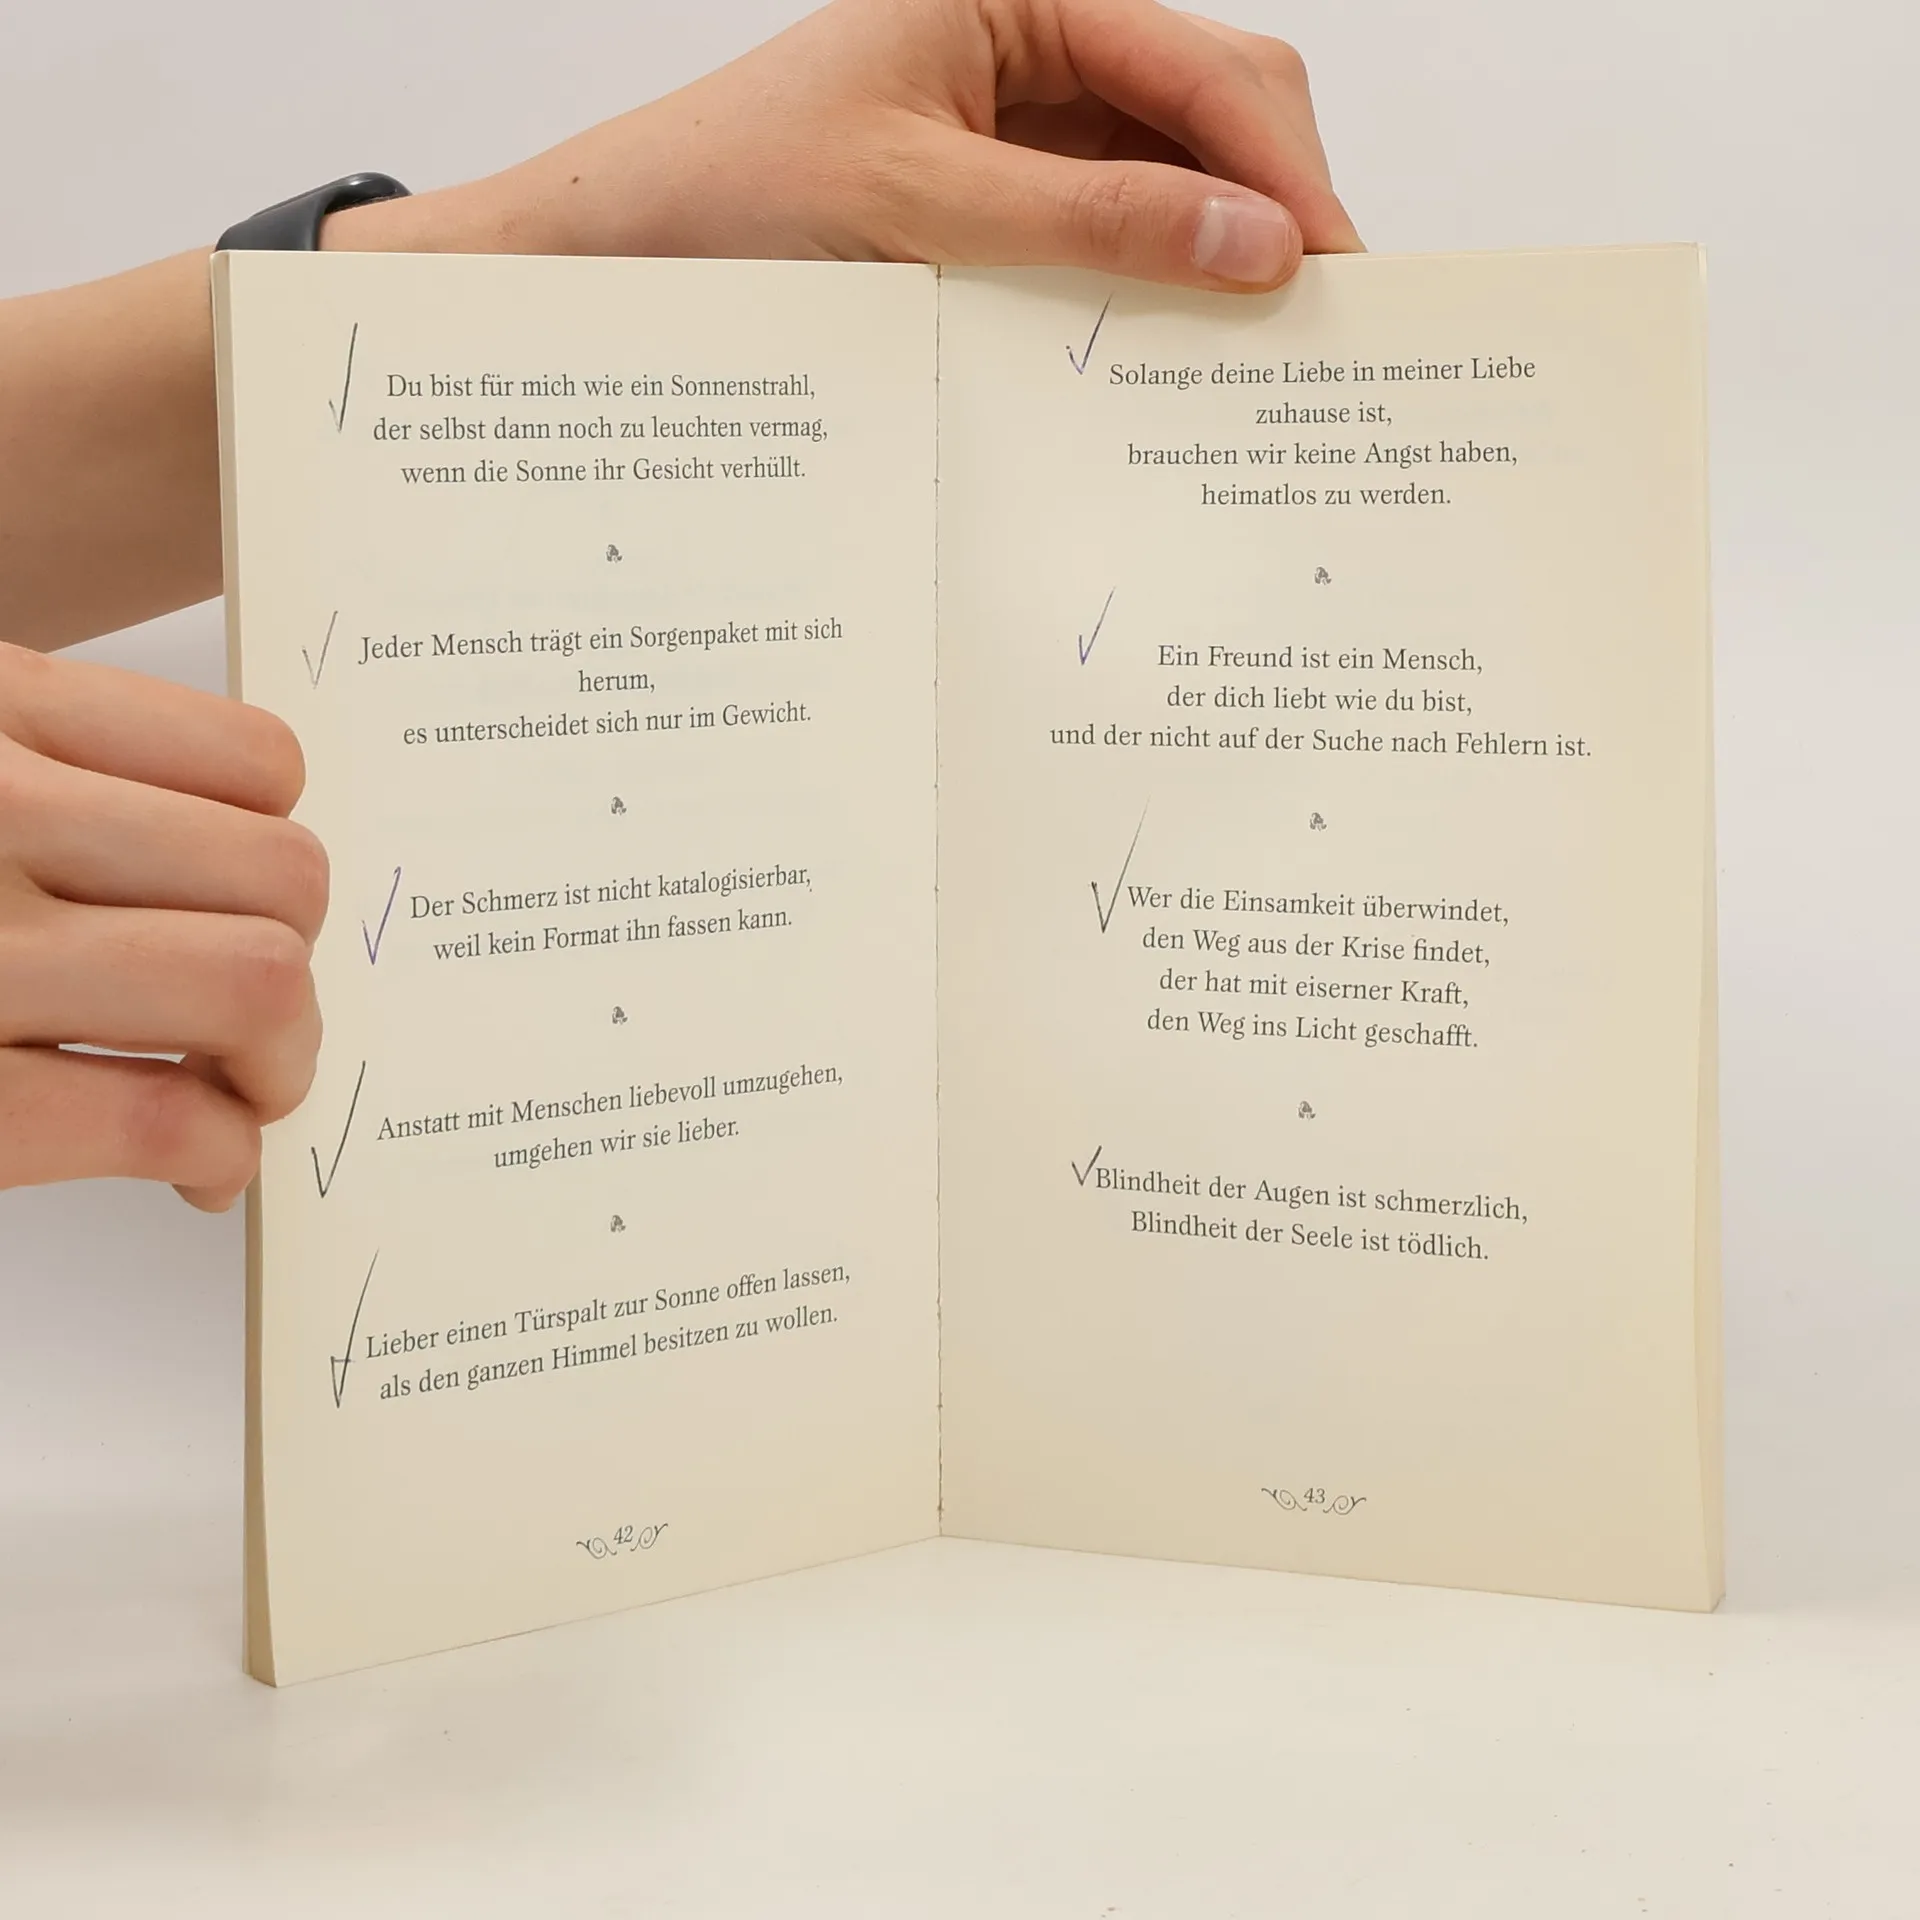 Du bist für mich wie ein Sonnenstrahl,
der selbst dann noch zu leuchten vermag,
wenn die Sonne ihr Gesicht verhüllt.
Jeder Mensch trägt ein Sorgenpaket mit sich
herum,
es unterscheidet sich nur im Gewicht.
Der Schmerz ist nicht katalogisierbar,
weil kein Format ihn fassen kann.
Anstatt mit Menschen liebevoll umzugehen,
umgehen wir sie lieber.
Lieber einen Türspalt zur Sonne offen lassen,
als den ganzen Himmel besitzen zu wollen.
42
Solange deine Liebe in meiner Liebe
zuhause ist,
brauchen wir keine Angst haben,
heimatlos zu werden.
Ein Freund ist ein Mensch,
der dich liebt wie du bist,
und der nicht auf der Suche nach Fehlern ist.
Wer die Einsamkeit überwindet,
den Weg aus der Krise findet,
der hat mit eiserner Kraft,
den Weg ins Licht geschafft.
Blindheit der Augen ist schmerzlich,
Blindheit der Seele ist tödlich.
43